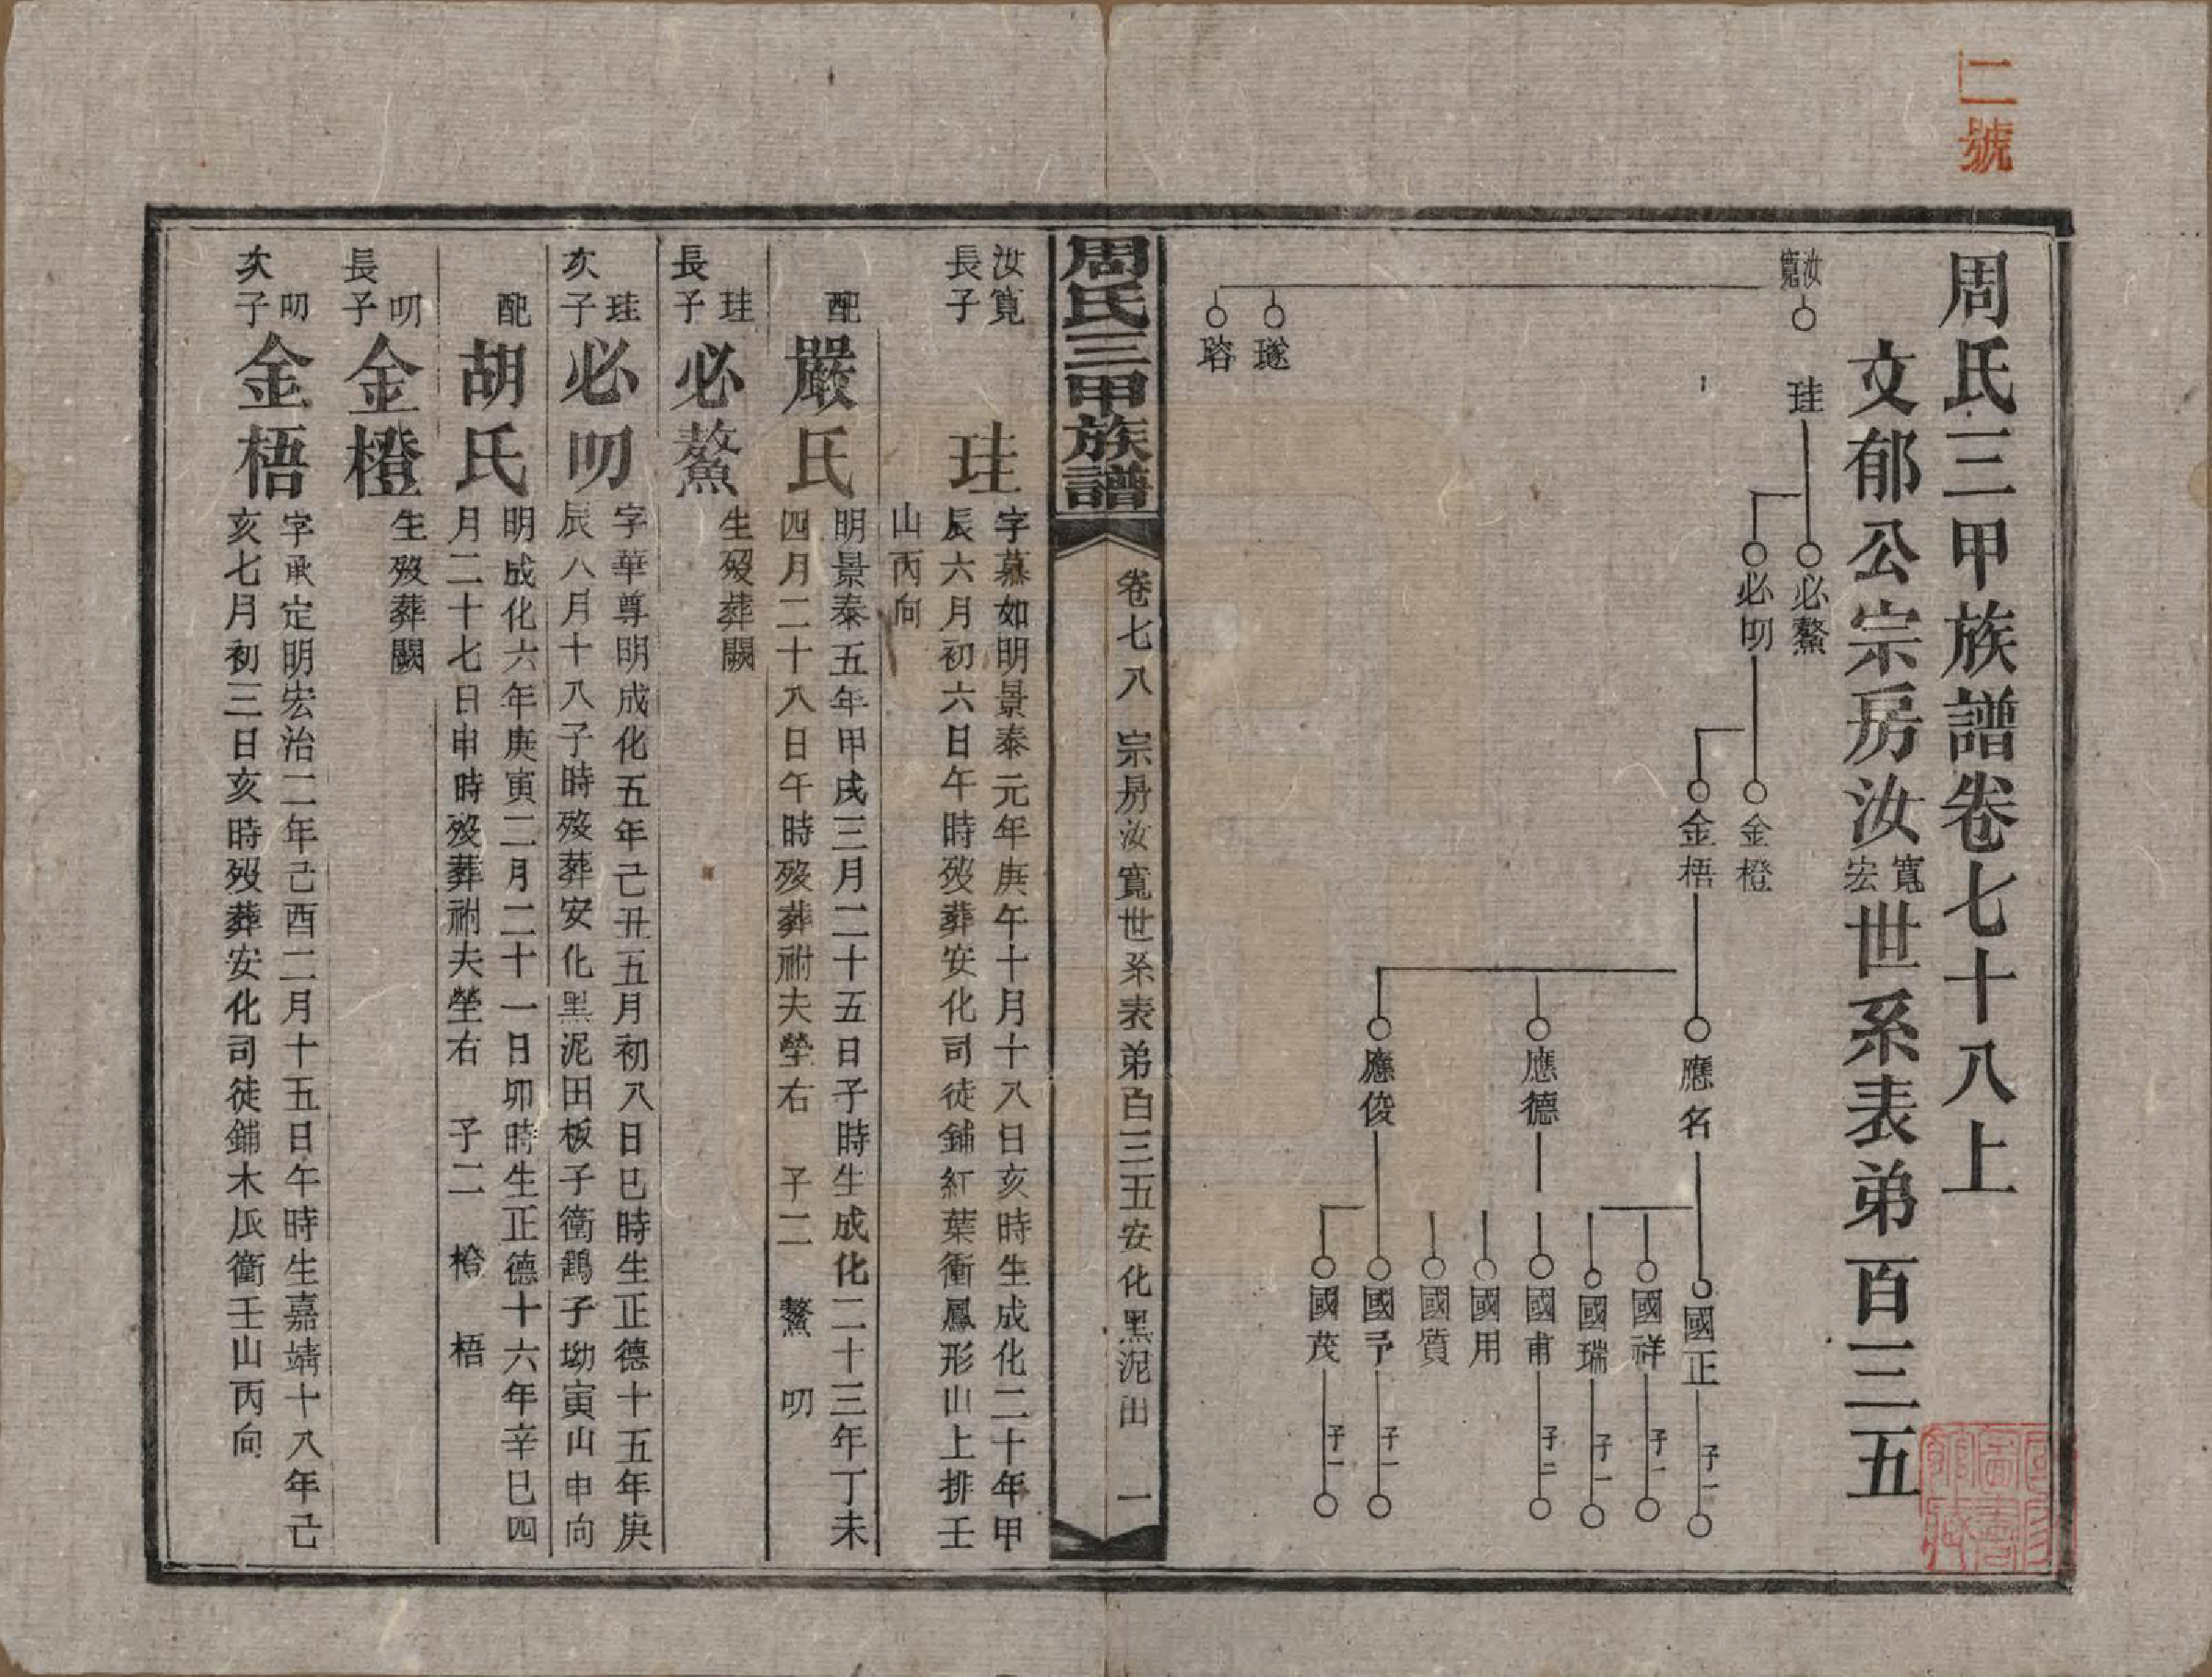 二號
周氏三甲族譜卷七十八上
文郁公宗房汝寬宏世系表弟百三五
汝寬
珪
必鰲
必叨
金橙
金梧
應名
應德
應俊
國正 子一
國祥 子一
國瑞 子一
國甫 子二
國用
國質
國予 子一
國茂 子一
璲
㻭
周氏三甲族譜
卷七八 宗房汝寬世系表弟百三五安化黑泥田 一
汝寬長子
珪
字慕如明景泰元年庚午十月十八日亥時生成化二十年甲
辰六月初六日午時歿葬安化司徒鋪紅葉衝鳳形山上排壬
山丙向
配
嚴氏
明景泰五年甲戌三月二十五日子時生成化二十三年丁未
四月二十八日午時歿葬祔夫塋右 子二 鰲 叨
珪長子
必鰲
生歿葬闕
珪次子
必叨
字華尊明成化五年己丑五月初八日巳時生正德十五年庚
辰八月十八子時歿葬安化黑泥田板子衝鵲子坳寅山申向
配
胡氏
明成化六年庚寅二月二十一日卯時生正德十六年辛巳四
月二十七日申時歿葬祔夫塋右 子二 橙 梧
叨長子
金橙
生歿葬闕
叨次子
金梧
字承定明宏治二年己酉二月十五日午時生嘉靖十八年己
亥七月初三日亥時歿葬安化司徒鋪木瓜衝壬山丙向